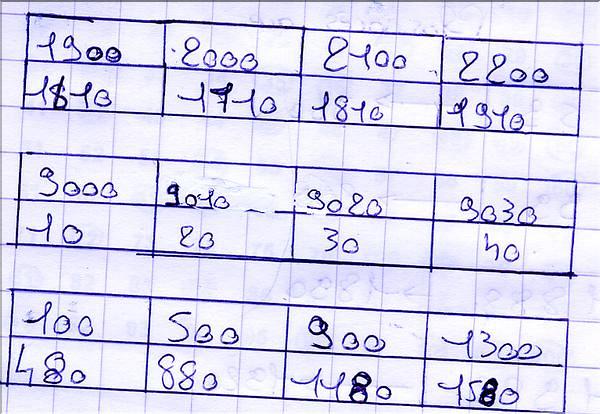 1900 2000 2100 2200
1610 1710 1810 1910
9000 9010 9020 9030
10 20 30 40
100 500 900 1300
480 880 1180 1580